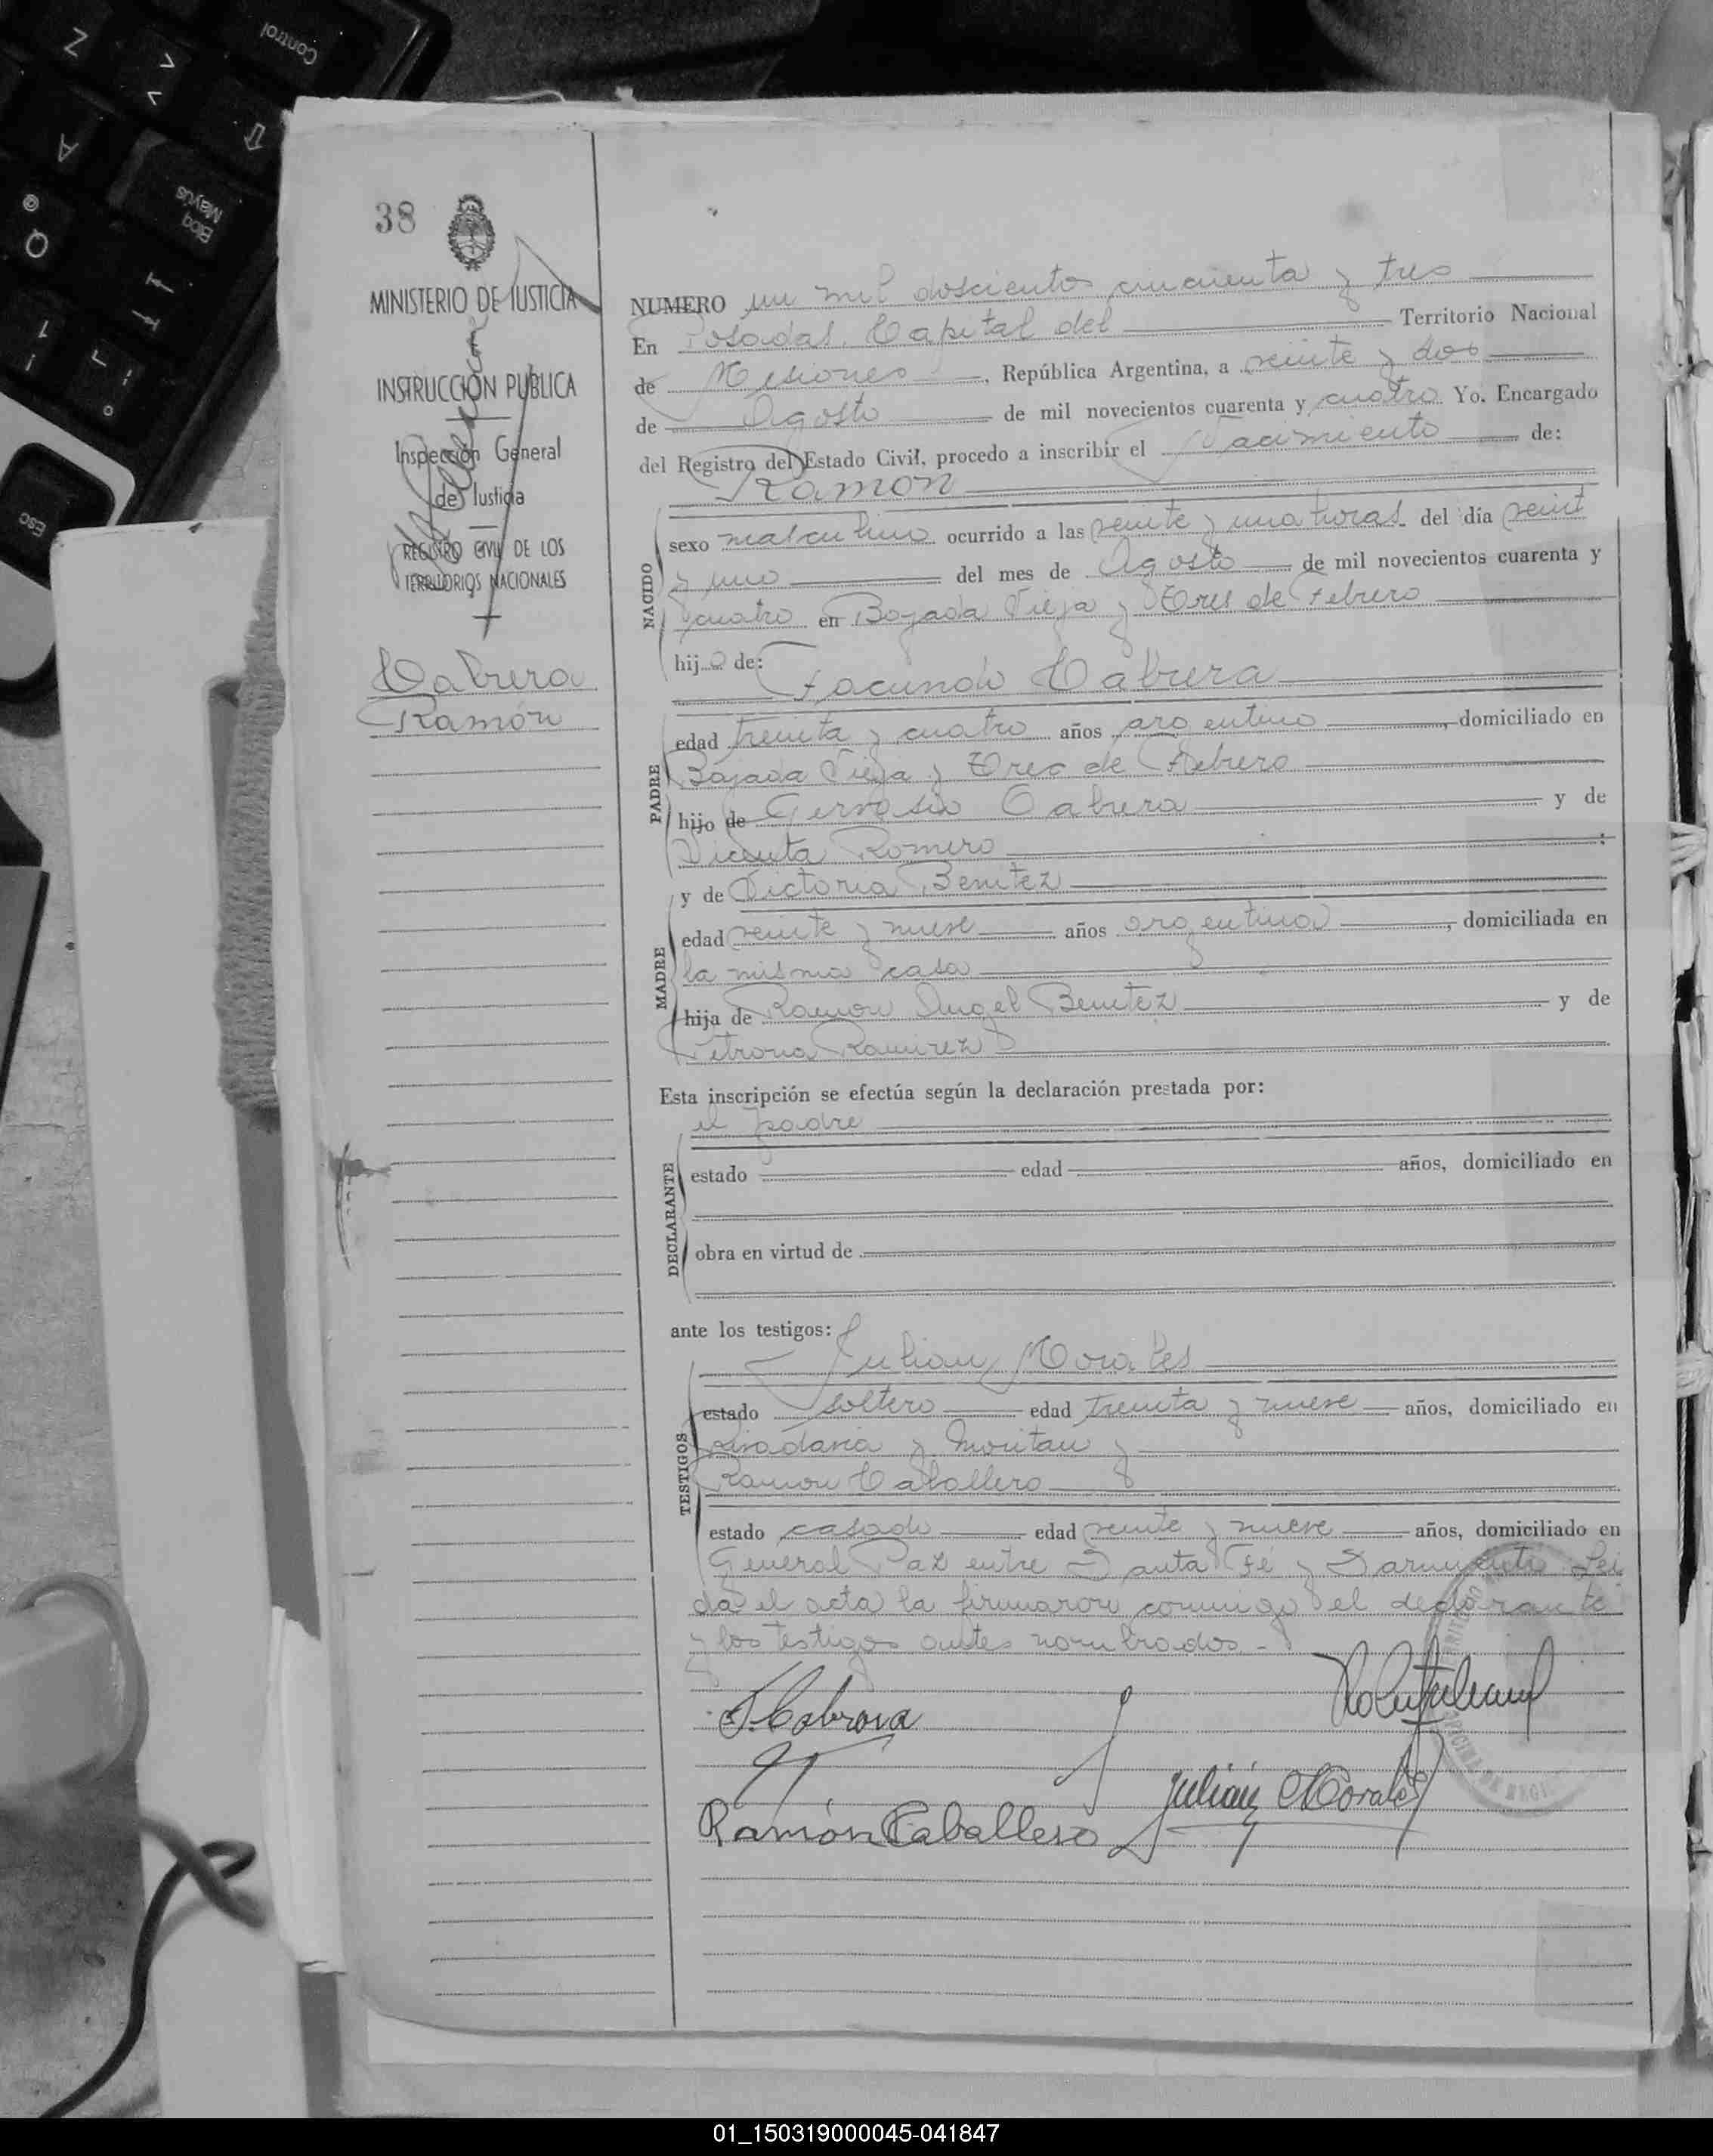 Control
Z
>
<
A
Bloq
Mayús
@
Q
Esc
38
MINISTERIO DE JUSTICIA
INSTRUCCIÓN PUBLICA
Inspección General
de Justicia
REGISTRO CIVIL DE LOS
TERRITORIOS NACIONALES
Cabrera
Ramón
NUMERO un mil doscientos cincuenta y tres
En Posadas, Capital del Territorio Nacional
de Misiones, República Argentina, a veinte y dos
de Agosto de mil novecientos cuarenta y cuatro Yo. Encargado
del Registro del Estado Civil, procedo a inscribir el Nacimiento de:
Ramón
NACIDO
sexo masculino ocurrido a las veinte y una horas del día veint
y uno del mes de Agosto de mil novecientos cuarenta y
cuatro en Bajada Vieja y Tres de Febrero
hijo de:
Facundo Cabrera
PADRE
edad treinta y cuatro años argentino, domiciliado en
Bajada Vieja y Tres de Febrero
hijo de Gervasio Cabrera y de
Vicenta Romero :
y de Victoria Benitez
MADRE
edad veinte y nueve años argentina, domiciliada en
la misma casa
hija de Ramon Angel Benitez y de
Petrona Ramirez
Esta inscripción se efectúa según la declaración prestada por:
el padre
DECLARANTE
estado edad años, domiciliado en
obra en virtud de
ante los testigos:
Julian Morales
TESTIGOS
estado soltero edad treinta y nueve años, domiciliado en
Rivadavia y y
Ramon Caballero
estado casado edad veinte y nueve años, domiciliado en
General Paz entre Santa Fé y Sarmiento Lei
da el acta la firmaron conmigo el declarante
y los testigos antes nombrados.-
F. Cabrera
Julián Morales
Ramón Caballero
01_150319000045-041847